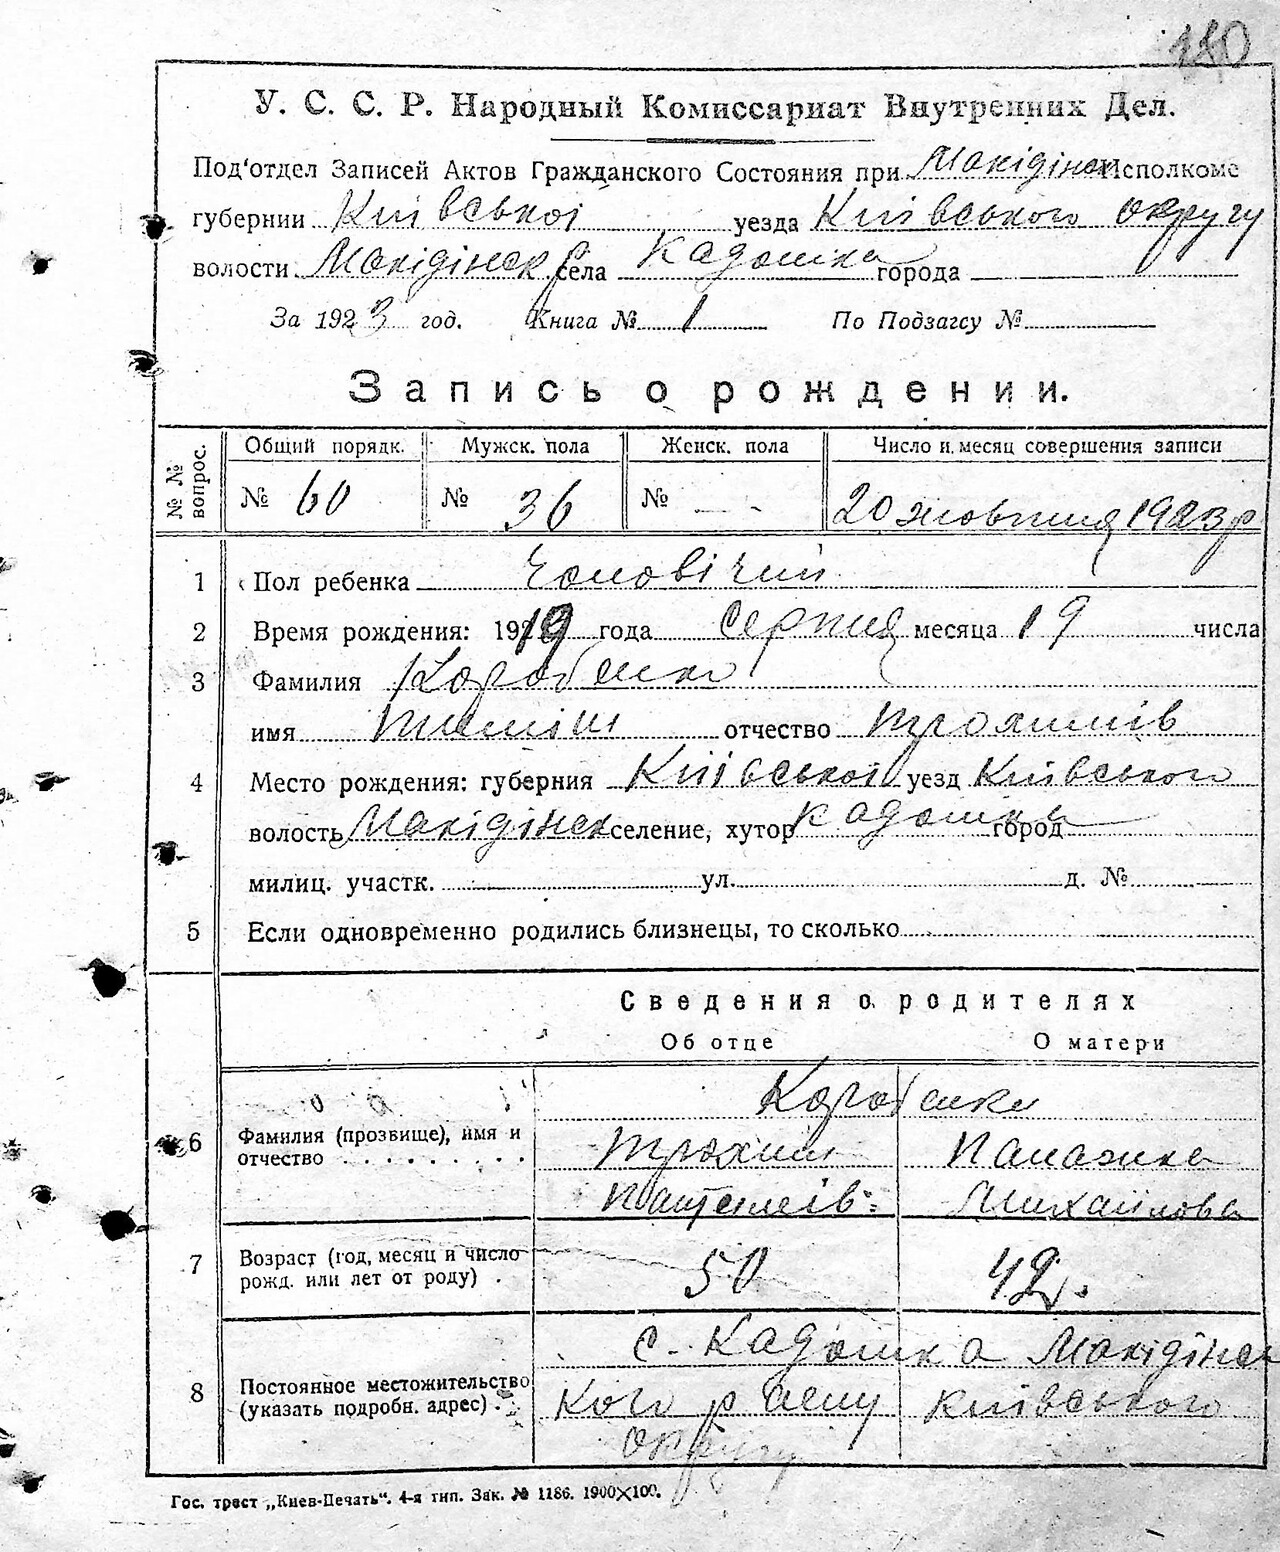 110
У. С. С. Р. Народный Комиссариат Внутренних Дел.
Под'отдел Записей Актов Гражданского Состояния при Макідінск Исполкоме
губернии Київської уезда Київського округу
волости Макідінск села Кадомка города
За 1923 год. Книга № 1 По Подзагсу №
Запись о рождении.
№ № вопрос.
Общий порядк. Мужск. пола Женск. пола Число и месяц совершения записи
№ 60 № 36 № — 20 жовтня 1923 р
1 Пол ребенка Чоловічий
2 Время рождения: 1919 года Серпня месяца 19 числа
3 Фамилия Коробенко
имя отчество Трохимів
4 Место рождения: губерния Київської уезд Київського
волость Макідінск селение, хутор Кадомка город
милиц. участк. ул. д. №
5 Если одновременно родились близнецы, то сколько
Сведения о родителях
Об отце О матери
Коробенки
6 Фамилия (прозвище), имя и отчество
Трохим Палажка
Михайлова
7 Возраст (год, месяц и число рожд. или лет от роду) . 50 42
с. Кадомка Макідінсь
8 Постоянное местожительство (указать подробн. адрес) .
кого району Київського
округу
Гос. трест „Киев-Печать“. 4-я тип. Зак. № 1186. 1900×100.